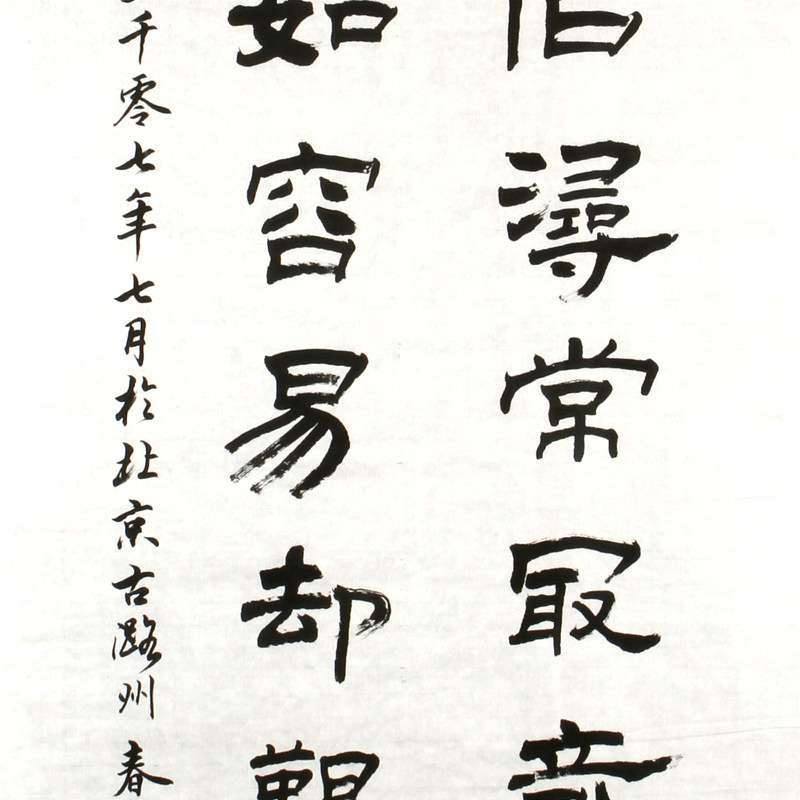 尋常冣奇
如容易却艱
千零七年七月於北京古潞州 春